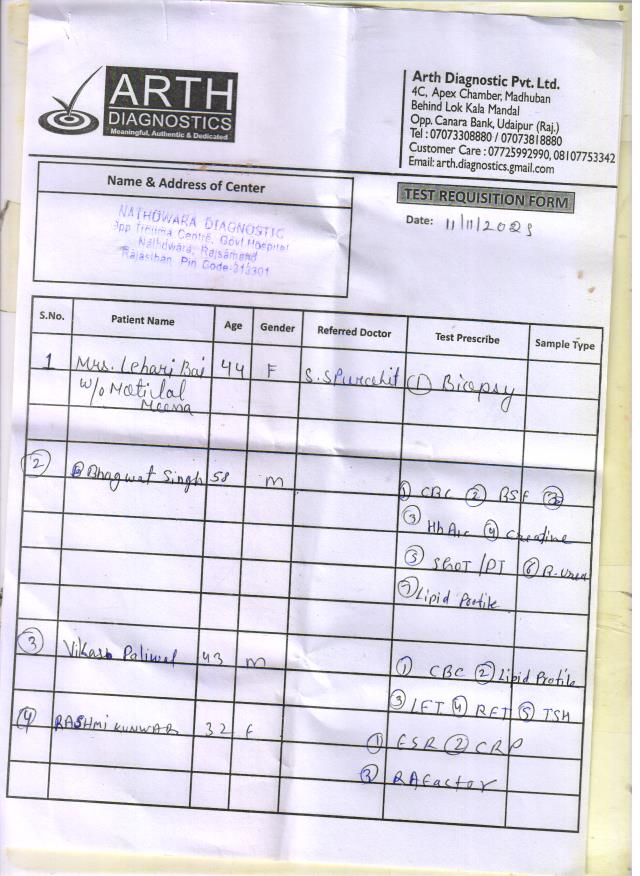 ARTH
DIAGNOSTICS
Meaningful, Authentic & Dedicated
Arth Diagnostic Pvt. Ltd.
4C, Apex Chamber, Madhuban
Behind Lok Kala Mandal
Opp. Canara Bank, Udaipur (Raj.)
Tel : 07073308880 / 07073818880
Customer Care : 07725992990, 08107753342
Email: arth.diagnostics.gmail.com
Name & Address of Center
NATHDWARA DIAGNOSTIC
Opp Trauma Centre, Govt Hospital
Nathdwara, Rajsamand
Rajasthan Pin Code-313301
TEST REQUISITION FORM
Date: 11/11/2025
S.No. Patient Name Age Gender Referred Doctor Test Prescribe Sample Type
1 Mrs. Lehari Bai 44 F S.S Purohit ① Biopsy
w/o Motilal
Meena
② Bhagwat Singh 58 M
① CBC ② BSF
③ HbA1c ④ Creatine
⑤ SGOT/PT ⑥ B.Urea
⑦ Lipid Profile
③ Vikash Paliwal 43 M ① CBC ② Lipid Profile
③ LFT ④ RFT ⑤ TSH
④ RASHMI KUNWAR 32 F ① ESR ② CRP
③ RA Factor